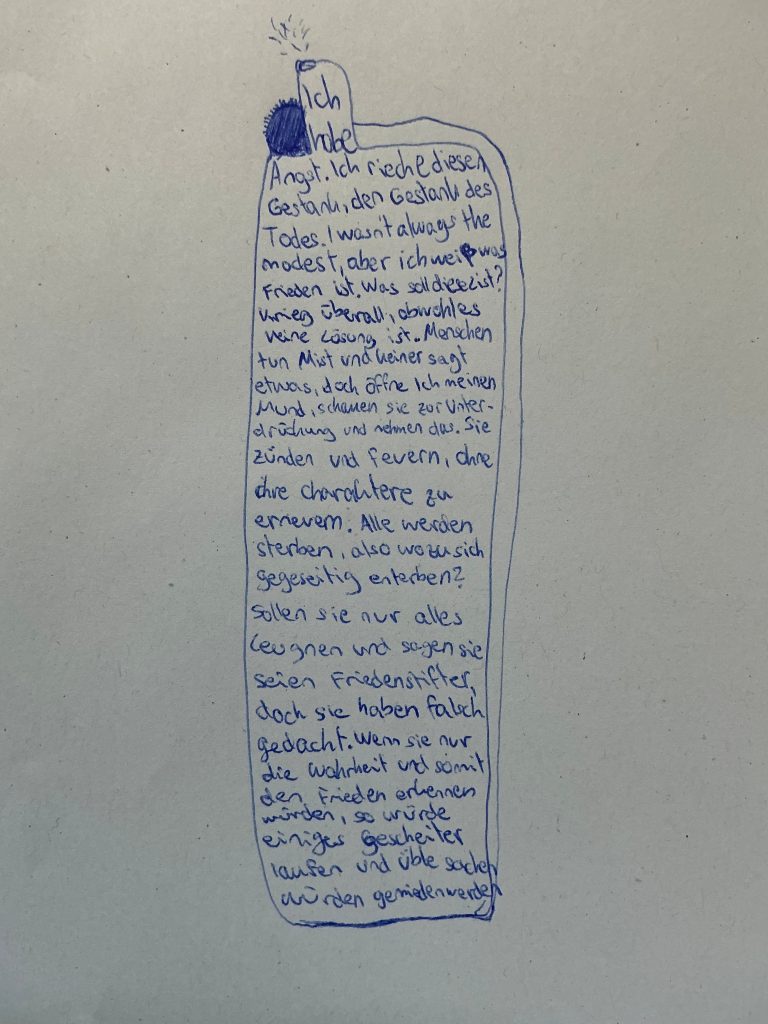 Ich
habe
Angst. Ich rieche diesen
Gestank, den Gestank des
Todes. I wasn't always the
modest, aber ich weiß was
Frieden ist. Was soll diese List?
Krieg überall, obwohl es
keine Lösung ist. Menschen
tun Mist und keiner sagt
etwas, doch öffne Ich meinen
Mund, schauen sie zur Unter-
drückung und nehmen das. Sie
zünden und feuern, ohne
ihre charaktere zu
erneuern. Alle werden
sterben, also wozu sich
gegeseitig enterben?
Sollen sie nur alles
leugnen und sagen sie
seien Friedenstifter,
doch sie haben falsch
gedacht. Wenn sie nur
die Wahrheit und somit
den Frieden erkennen
würden, so würde
einiges Gescheiter
laufen und üble sachen
würden gemieden werden